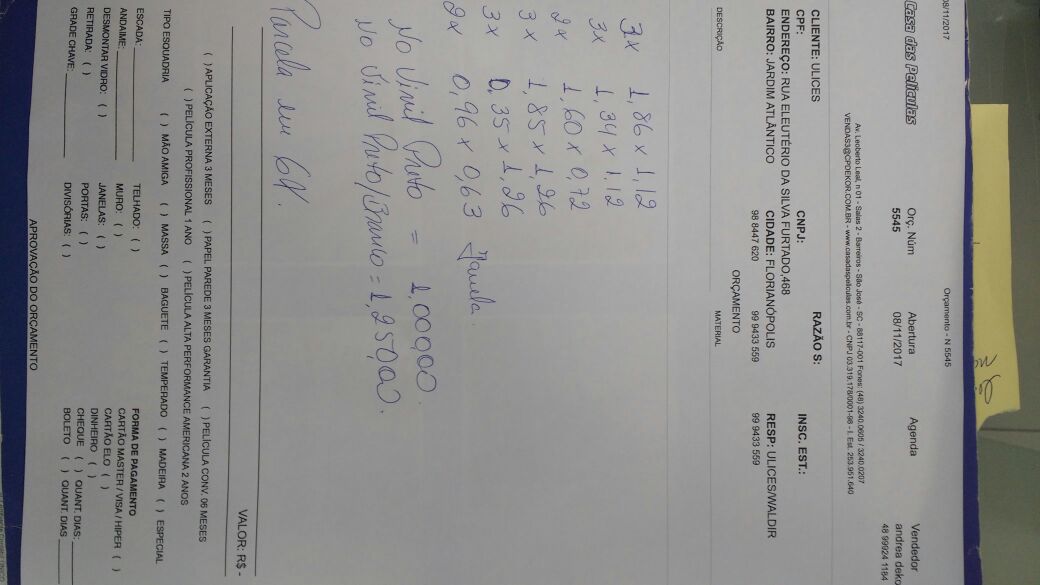 08/11/2017
Orçamento - N 5545
Casa das Películas
Orç. Núm
5545
Abertura
08/11/2017
Agenda
Vendedor
andrea deko
48 99924 1184
Av. Leoberto Leal, n 01 - Salas 2 - Barreiros - São José - SC - 88117-001 Fones: (48) 3240.0605 / 3240.0207
VENDAS3@CPDEKOR.COM.BR - www.casadaspeliculas.com.br - CNPJ 03.319.178/0001-98 - I. Est. 253.951.640
CLIENTE: ULICES RAZÃO S:
CPF: CNPJ: INSC. EST.:
ENDEREÇO: RUA ELEUTÉRIO DA SILVA FURTADO,468
BAIRRO: JARDIM ATLÂNTICO CIDADE: FLORIANÓPOLIS RESP: ULICES/WALDIR
98 8447 620 99 9433 559 99 9433 559
ORÇAMENTO
DESCRIÇÃO MATERIAL
3x 1,86 x 1,12
3x 1,34 x 1,12
2x 1,60 x 0,72
3x 1,85 x 1,26
3x 0,35 x 1,26
2x 0,96 x 0,63 Janela.
No Vinil Preto = 1,000,00.
No Vinil Preto/Branco = 1,250,00.
Parcela em 6X.
VALOR: R$ -
( ) APLICAÇÃO EXTERNA 3 MESES ( ) PAPEL PAREDE 3 MESES GARANTIA ( ) PELÍCULA CONV. 06 MESES
( ) PELÍCULA PROFISSIONAL 1 ANO ( ) PELÍCULA ALTA PERFORMANCE AMERICANA 2 ANOS
TIPO ESQUADRIA ( ) MÃO AMIGA ( ) MASSA ( ) BAGUETE ( ) TEMPERADO ( ) MADEIRA ( ) ESPECIAL
ESCADA: TELHADO: ( ) FORMA DE PAGAMENTO
ANDAIME: MURO: ( ) CARTÃO MASTER / VISA / HIPER ( )
DESMONTAR VIDRO: ( ) JANELAS: ( ) CARTÃO ELO ( )
RETIRADA: ( ) PORTAS: ( ) DINHEIRO ( )
GRADE CHAVE: DIVISÓRIAS: ( ) CHEQUE ( ) QUANT. DIAS:
BOLETO ( ) QUANT. DIAS
APROVAÇÃO DO ORÇAMENTO